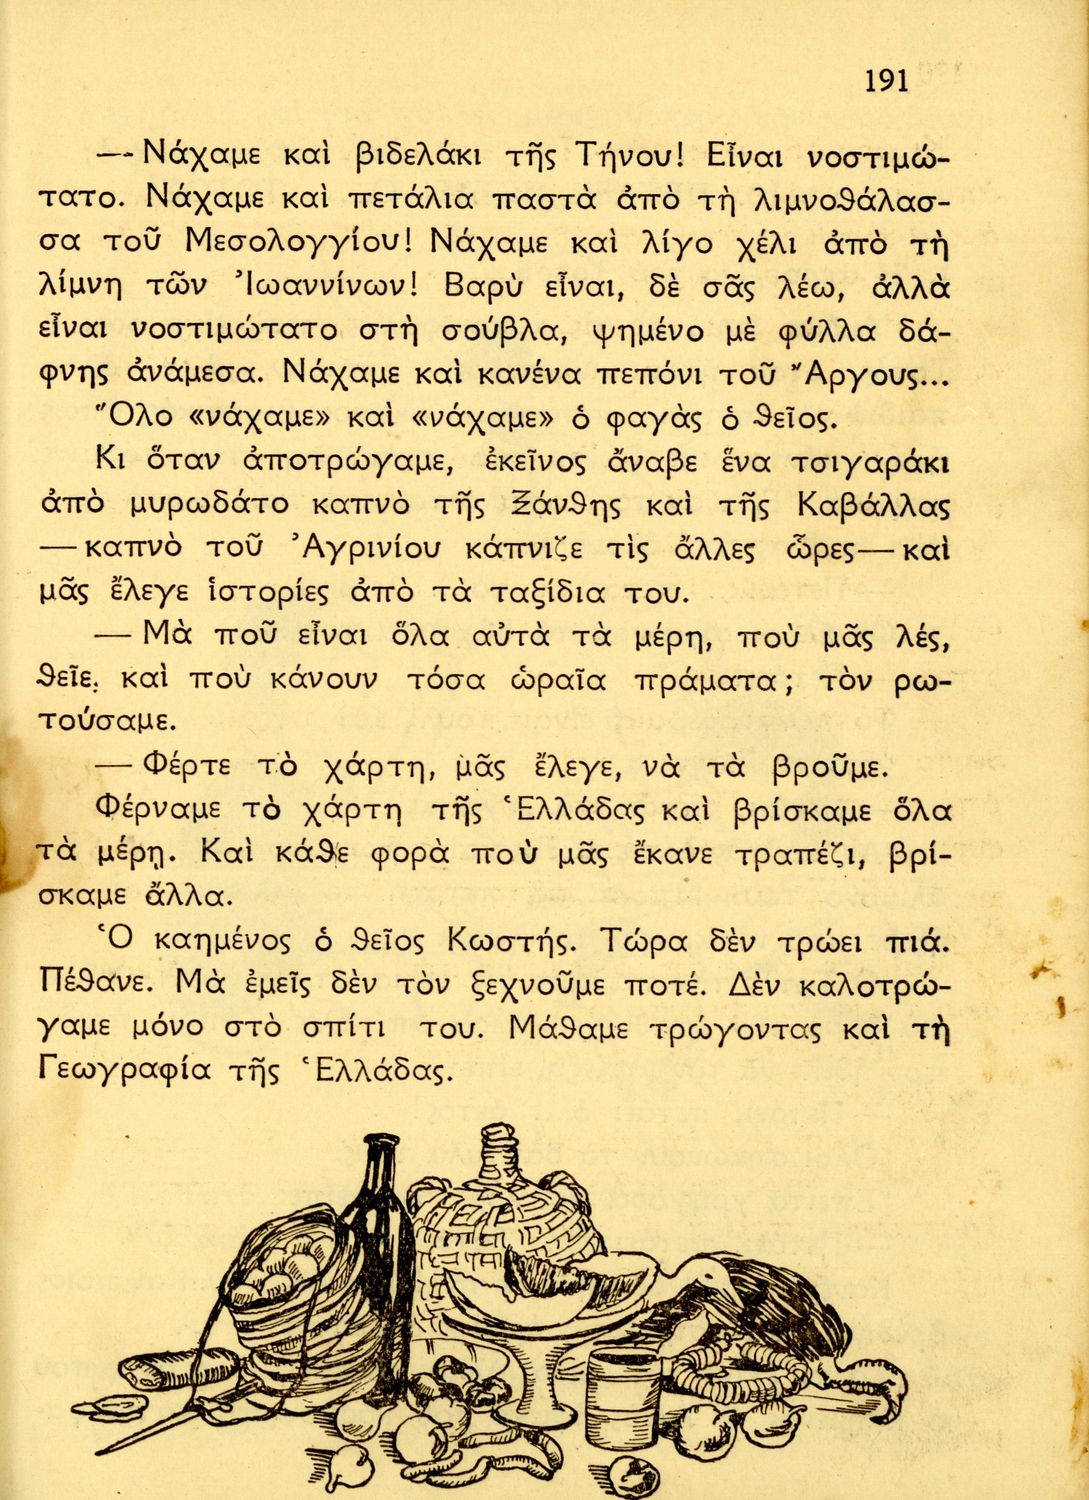 191
— Νάχαμε καὶ βιδελάκι τῆς Τήνου! Εἶναι νοστιμώ-
τατο. Νάχαμε καὶ πετάλια παστὰ ἀπὸ τὴ λιμνοθάλασ-
σα τοῦ Μεσολογγίου! Νάχαμε καὶ λίγο χέλι ἀπὸ τὴ
λίμνη τῶν Ἰωαννίνων! Βαρὺ εἶναι, δὲ σᾶς λέω, ἀλλὰ
εἶναι νοστιμώτατο στὴ σούβλα, ψημένο μὲ φύλλα δά-
φνης ἀνάμεσα. Νάχαμε καὶ κανένα πεπόνι τοῦ Ἄργους...
Ὅλο «νάχαμε» καὶ «νάχαμε» ὁ φαγὰς ὁ θεῖος.
Κι ὅταν ἀποτρώγαμε, ἐκεῖνος ἄναβε ἕνα τσιγαράκι
ἀπὸ μυρωδάτο καπνὸ τῆς Ξάνθης καὶ τῆς Καβάλλας
— καπνὸ τοῦ Ἀγρινίου κάπνιζε τὶς ἄλλες ὧρες — καὶ
μᾶς ἔλεγε ἱστορίες ἀπὸ τὰ ταξίδια του.
— Μὰ ποῦ εἶναι ὅλα αὐτὰ τὰ μέρη, ποὺ μᾶς λές,
θεῖε, καὶ ποὺ κάνουν τόσα ὡραῖα πράματα; τὸν ρω-
τούσαμε.
— Φέρτε τὸ χάρτη, μᾶς ἔλεγε, νὰ τὰ βροῦμε.
Φέρναμε τὸ χάρτη τῆς Ἑλλάδας καὶ βρίσκαμε ὅλα
τὰ μέρη. Καὶ κάθε φορὰ ποὺ μᾶς ἔκανε τραπέζι, βρί-
σκαμε ἄλλα.
Ὁ καημένος ὁ θεῖος Κωστής. Τώρα δὲν τρώει πιά.
Πέθανε. Μὰ ἐμεῖς δὲν τὸν ξεχνοῦμε ποτέ. Δὲν καλοτρώ-
γαμε μόνο στὸ σπίτι του. Μάθαμε τρώγοντας καὶ τὴ
Γεωγραφία τῆς Ἑλλάδας.